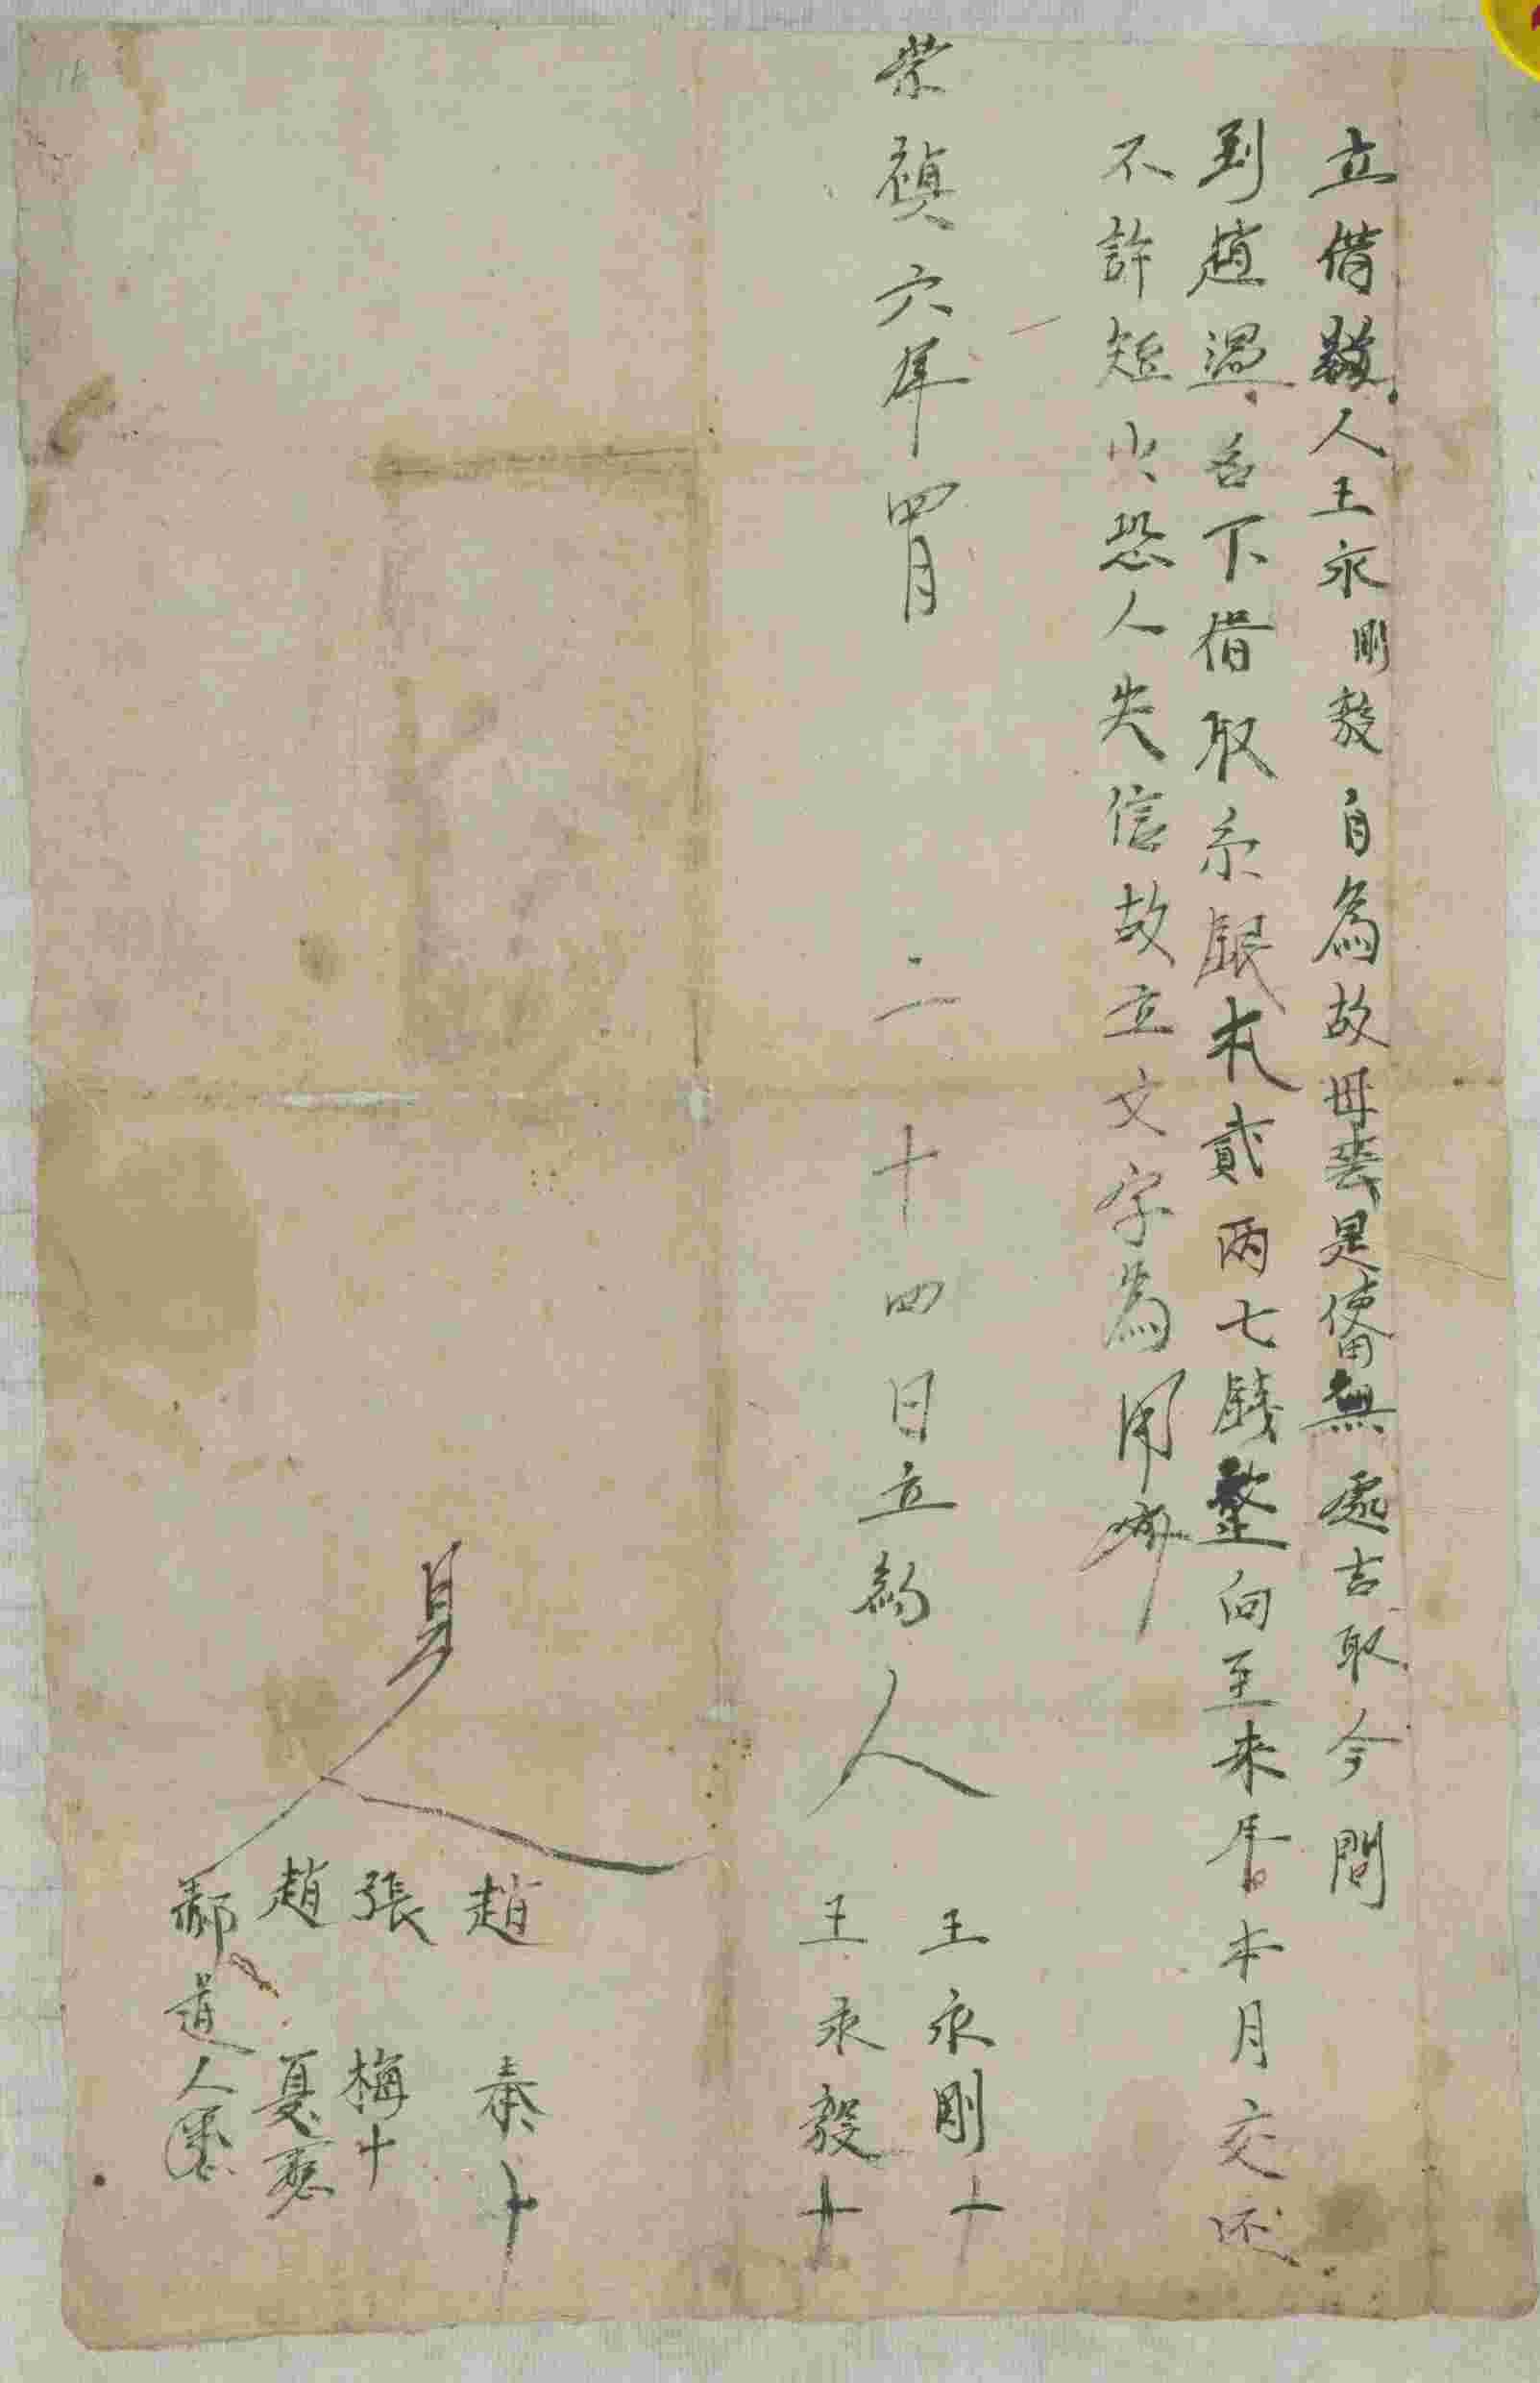 立借人王永剛毅自為故母喪是使用無處去取今問
到趙遇名下借取糸銀本貳两七錢整向至來年本月交还
不許短少恐人失信故立文字為用
崇禎六年四月二十四日立約人
王永剛十
王永毅十
見人
趙泰十
張梅十
趙夏
郝道人